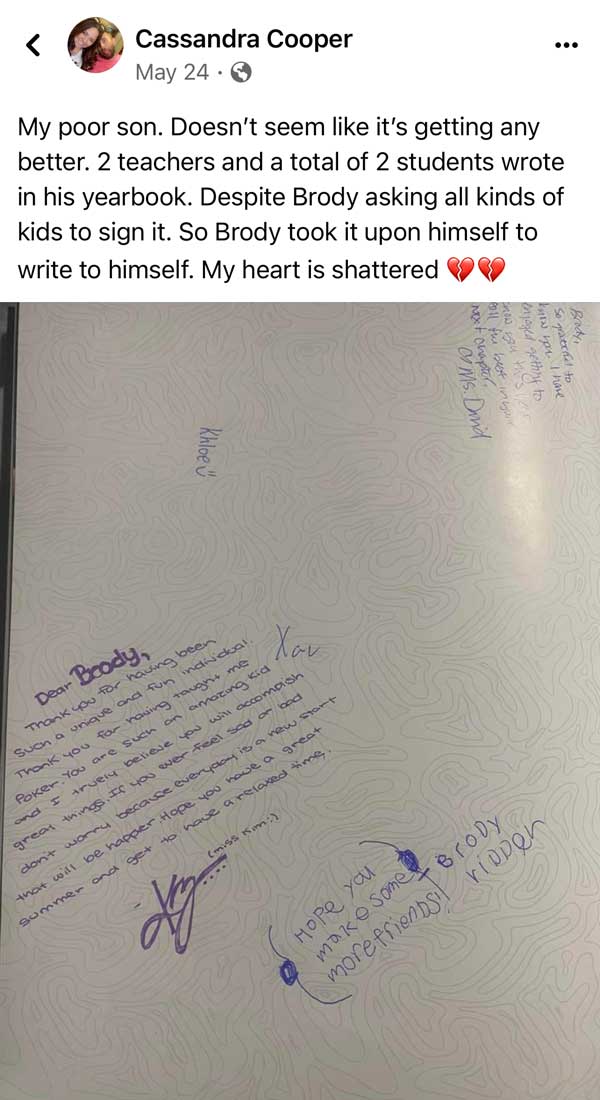 Cassandra Cooper
May 24 ·
My poor son. Doesn't seem like it's getting any
better. 2 teachers and a total of 2 students wrote
in his yearbook. Despite Brody asking all kinds of
kids to sign it. So Brody took it upon himself to
write to himself. My heart is shattered 💔💔
Brody,
So grateful to
know you. I have
enjoyed getting to
know you this year
all the best in your
next chapter.
Ms. David
Khloe
Xav
Dear Brody,
Thank you for having been
such a unique and fun individual.
Thank you for having taught me
Poker. You are such an amazing kid
and I truely believe you will accomplish
great things. If you ever feel sad or bad
don't worry because everyday is a new start
that will be happer Hope you have a great
summer and get to have a relaxed time.
(miss Kim:)
Hope you
make some
more friends!
- BRODY
ridder